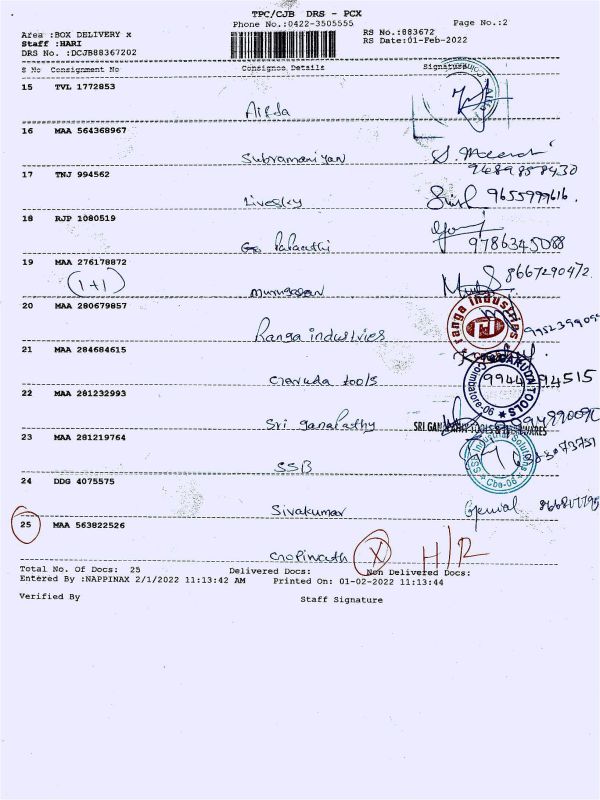 TPC/CJB DRS - PCX
Phone No.:0422-3505555 Page No.:2
Area :BOX DELIVERY x RS No.:883672
Staff :HARI RS Date:01-Feb-2022
DRS No. :DCJB88367202
S No Consignment No Consignee Details Signature
15 TVL 1772853
Alfda
16 MAA 564368967
Subramaniyan
9489858430
17 TNJ 994562
Livesky 9655999616.
18 RJP 1080519
9786345088
19 MAA 276178872
(1+1) Murugesan 8667290472
20 MAA 280679857
Ranga industries
ranga industries
21 MAA 284684615
Garuda tools
GARUDA TOOLS
Coimbatore-06
99444 94515
22 MAA 281232993
Sri Ganapathy
23 MAA 281219764
SSB
Industrial Solutions
Cbe-06
24 DDG 4075575
Sivakumar
25 MAA 563822526
Gopinath X H/R
Total No. Of Docs: 25 Delivered Docs: Non Delivered Docs:
Entered By :NAPPINAX 2/1/2022 11:13:42 AM Printed On: 01-02-2022 11:13:44
Verified By Staff Signature